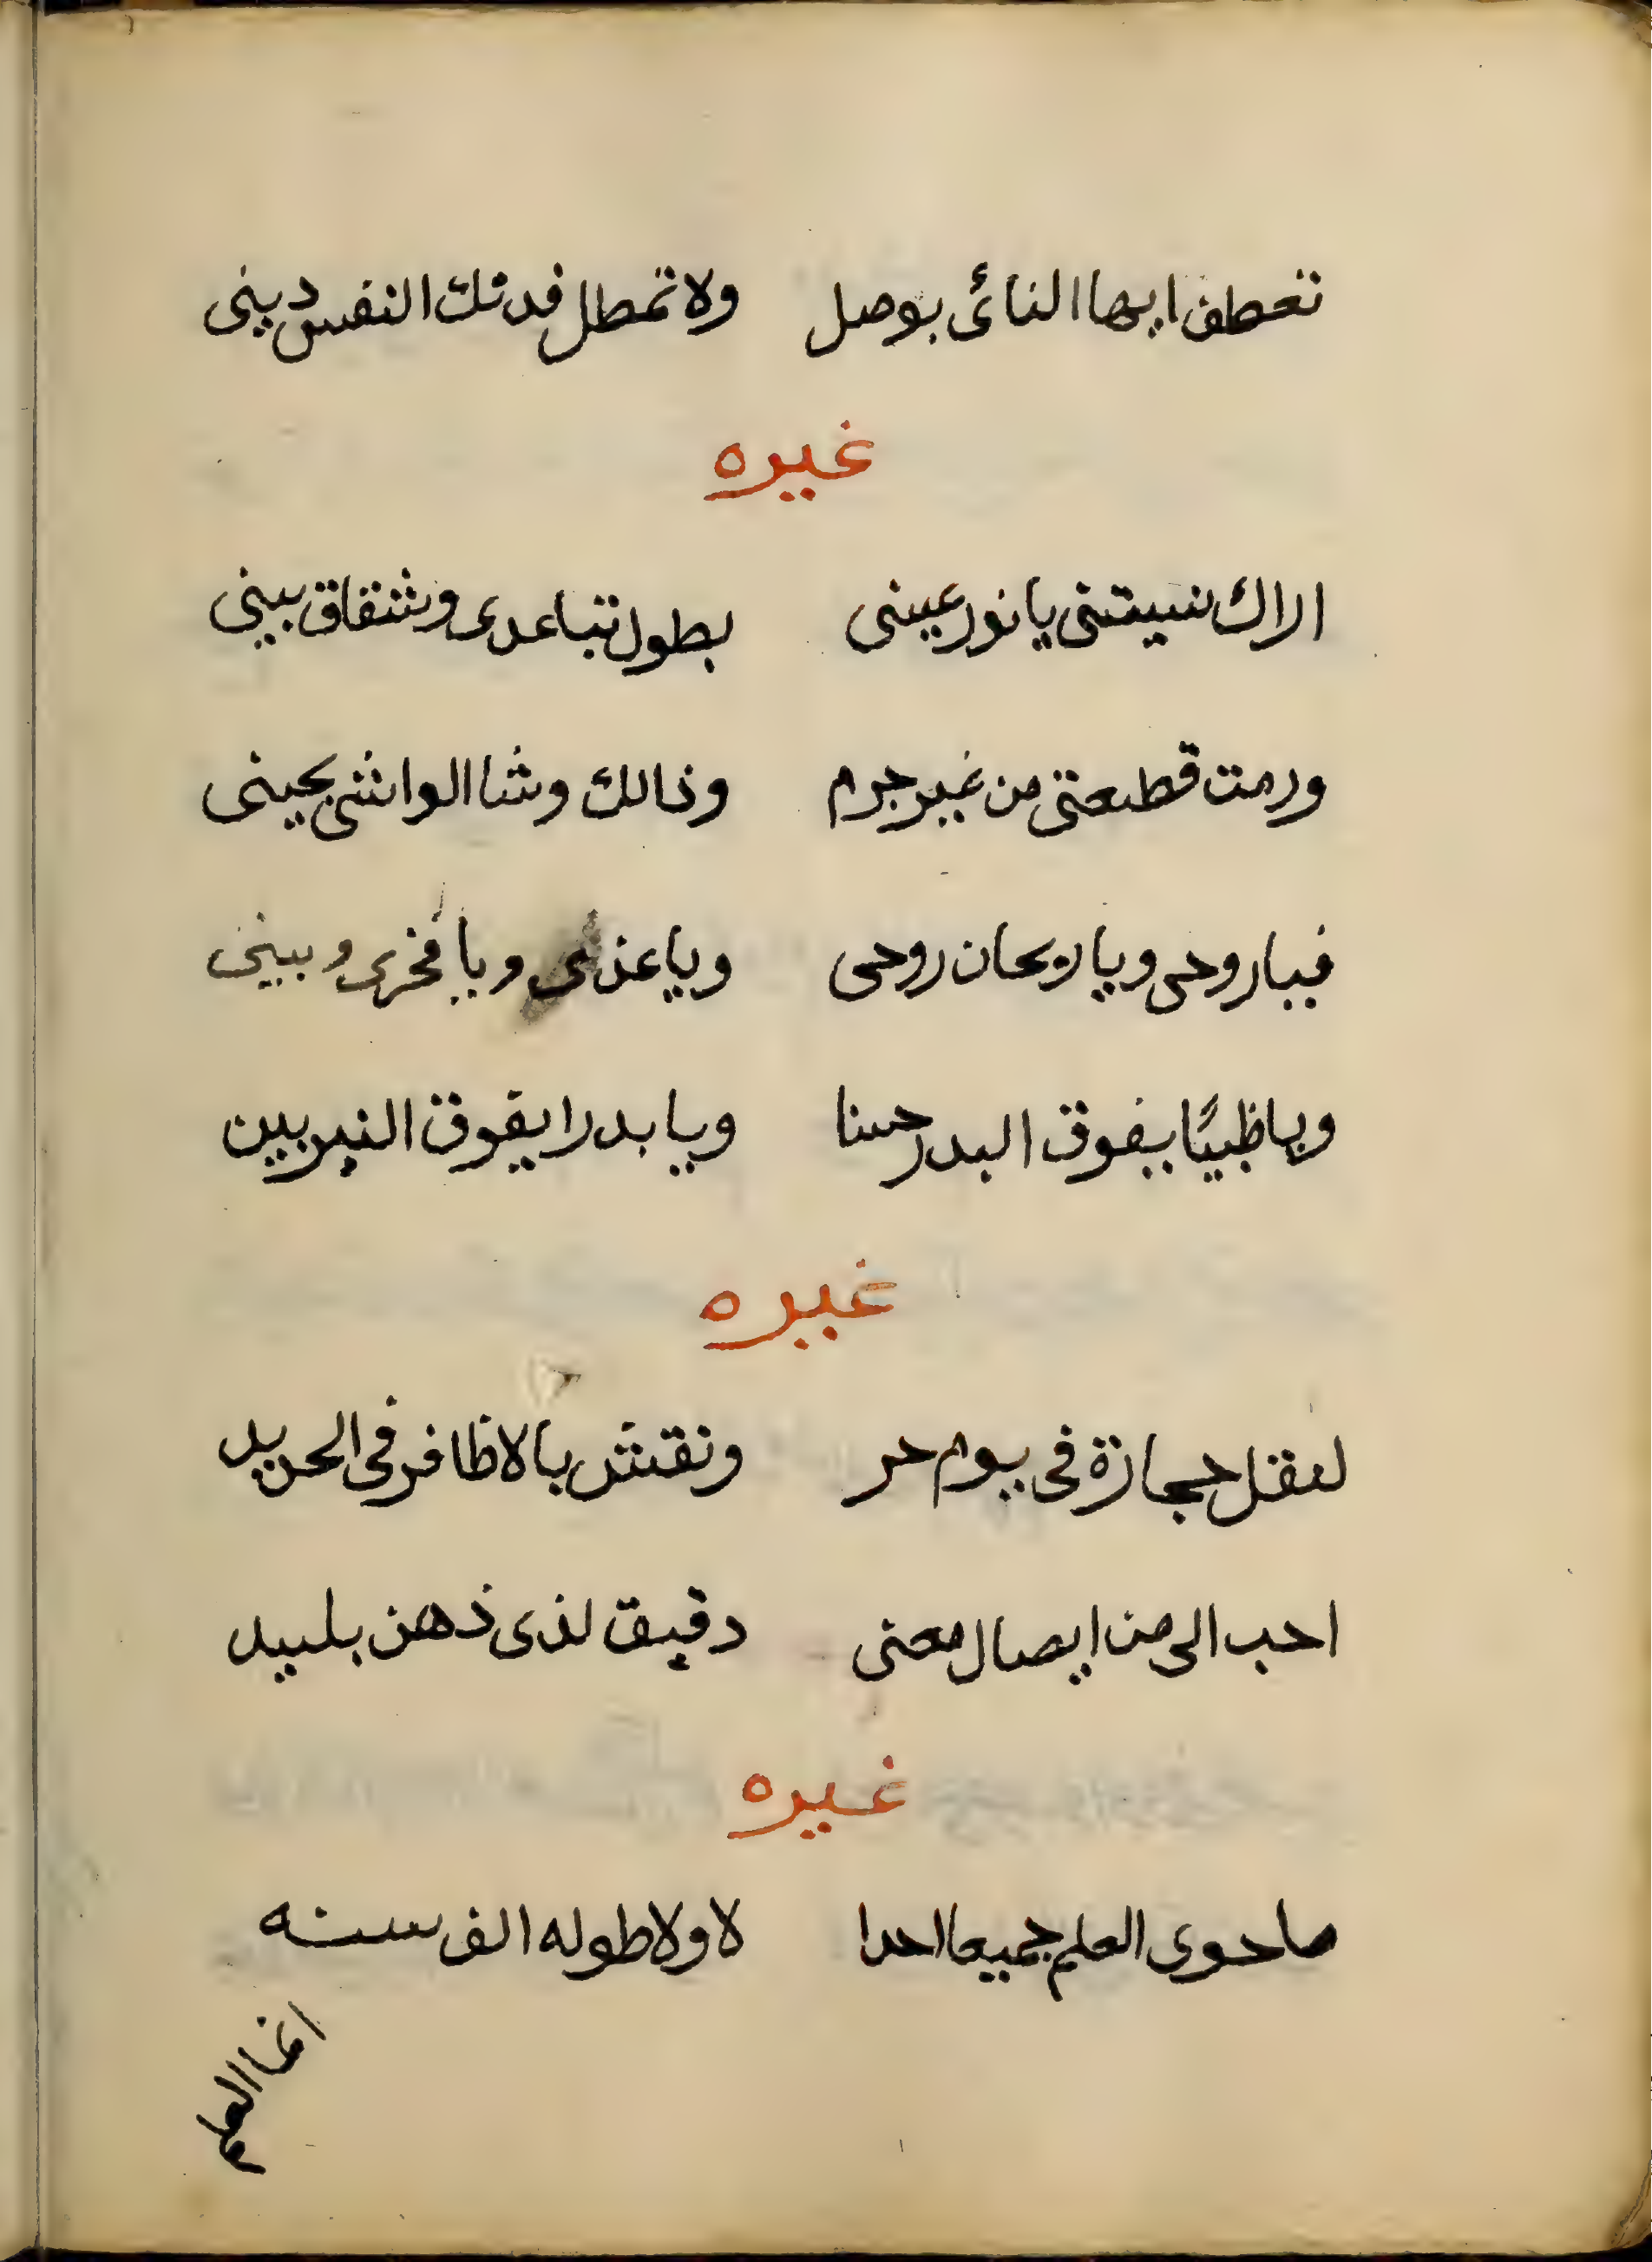 تعطف ايها النائى بوصل ولا تمطل فدتك النفس دينى
غيره
اراك نسيتنى يا نور عينى بطول تباعدى وشتقاق بينى
ورمت قطيعتى من غير جرم وذالك وشا الواشى بحينى
فيا روحى ويا ريحان روحى ويا عذى ويا فخرى وبينى
ويا ظبيًا يفوق البدر حسنا ويا بدرا يفوق النيربين
غيره
لنقل حجارة فى يوم حر ونقش بالاظافر فى الحديد
احب الى من ايصال معنى دقيق لذى ذهن بليد
غيره
ما حوى العلم جميعا احدا لا ولا طوله الف سنه
انما العلم